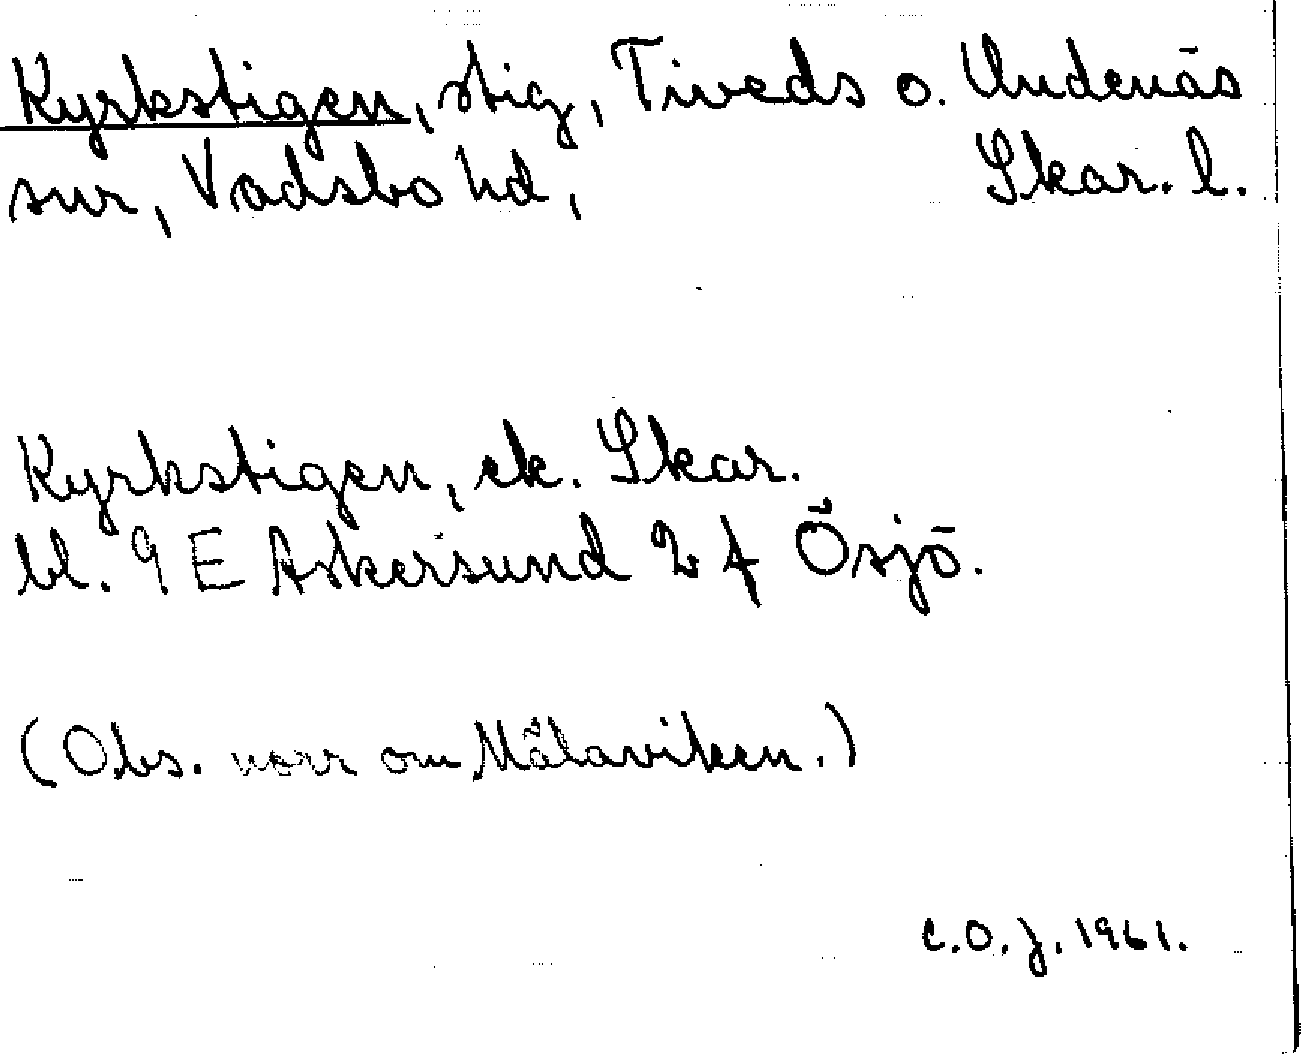 Kyrkstigen, stig, Tiveds o. Undenäs
snr, Vadsbo hd, Skar. l.
Kyrkstigen, ek. Skar.
bl. 9 E Askersund 2 f Ösjö.
(Obs. norr om Målaviken.)
C.O.J. 1961.